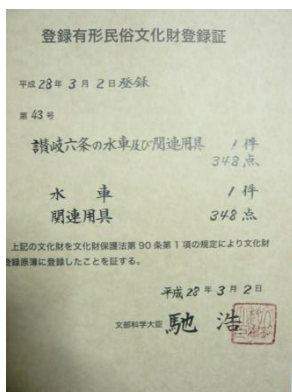 登録有形民俗文化財登録証
平成28年3月2日登録
第43号
讃岐六条の水車及び関連用具 1件
348点
水車 1件
関連用具 348点
上記の文化財を文化財保護法第90条第1項の規定により文化財
登録原簿に登録したことを証する。
平成28年3月2日
文部科学大臣 馳浩